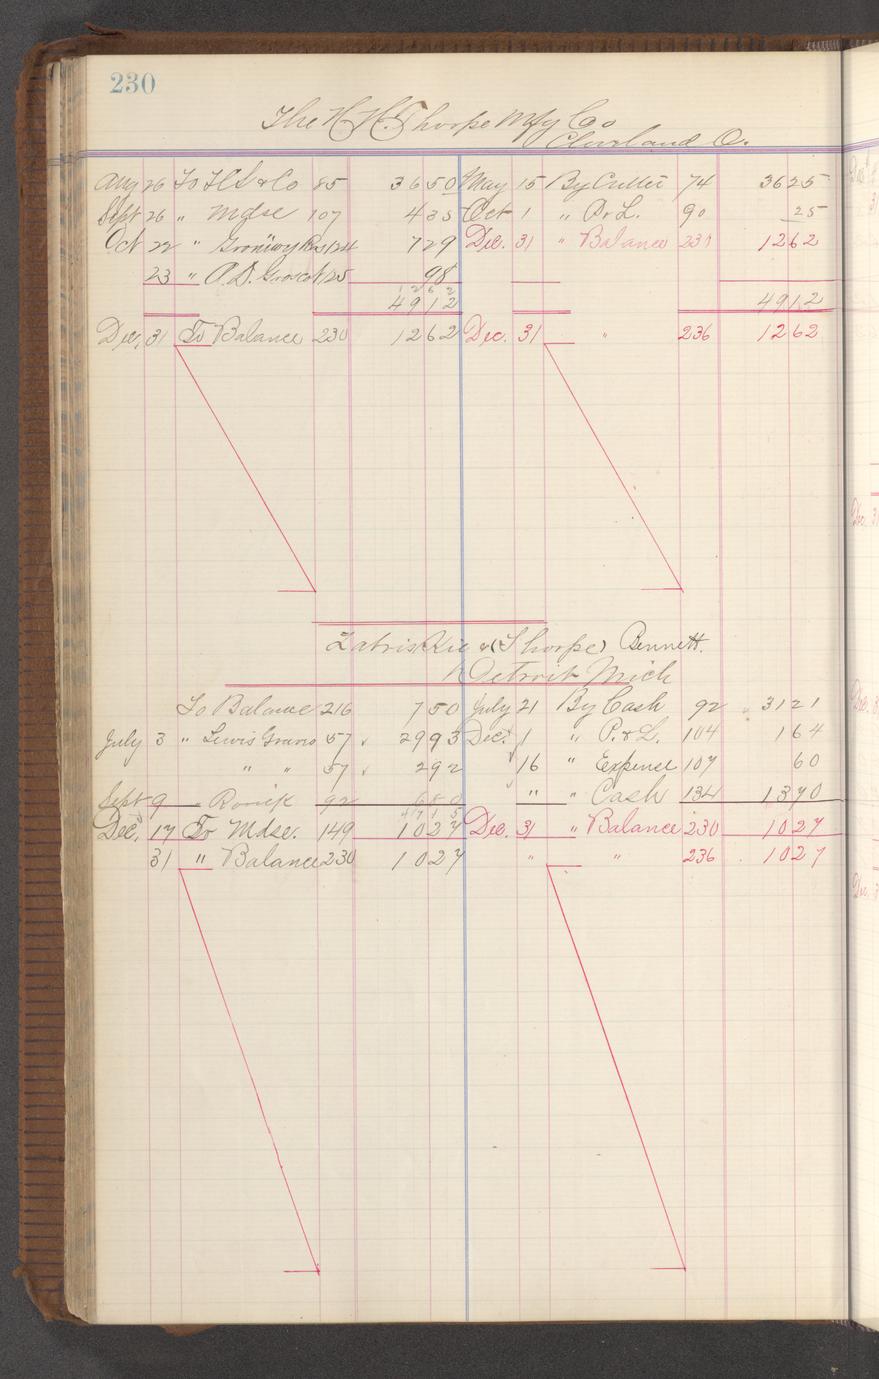 230
The H. H. Thorpe Mfg Co
Cleveland O.
Aug 26 To H L & Co 85 36 50 May 15 By Cutter 74 36 25
Sept 26 " Mdse 107 4 35 Oct 1 " P. & L. 90 25
Oct 22 " 124 7 29 Dec. 31 " Balance 230 12 62
23 " 125 98
12 62
49 12 49 12
Dec. 31 To Balance 230 12 62 Dec. 31 " 236 12 62
Zabriskie & (Thorpe) Bennett.
Detroit Mich
To Balance 216 7 50 July 21 By Cash 92 31 21
July 3 " Lewis 57 29 93 Dec. 1 " P. & L. 104 1 64
" " 57 2 92 16 " Expense 107 60
Sept 9 Rorick 92 6 80 " " Cash 134 13 70
Dec. 17 To Mdse. 149 10 27 Dec. 31 " Balance 230 10 27
31 " Balance 230 10 27 " " 236 10 27